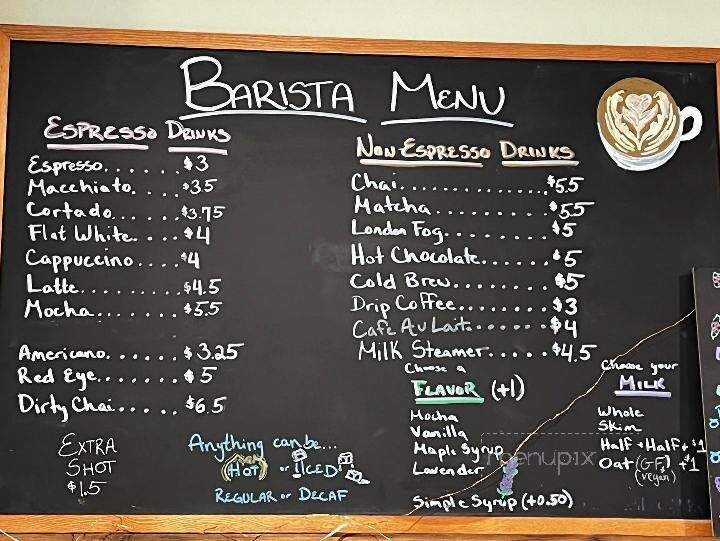 BARISTA MENU
ESPRESSO DRINKS
Espresso.......$3
Macchiato....$3.5
Cortado......$3.75
Flat White....$4
Cappuccino....$4
Latte..........$4.5
Mocha.........$5.5
Americano.......$3.25
Red Eye.......$5
Dirty Chai.....$6.5
EXTRA
SHOT
$1.5
Anything can be...
HOT or ICED
REGULAR or DECAF
NON-ESPRESSO DRINKS
Chai..............$5.5
Matcha..........$5.5
London Fog........$5
Hot Chocolate......$5
Cold Brew........$5
Drip Coffee........$3
Cafe Au Lait.......$4
Milk Steamer.....$4.5
Choose a
FLAVOR (+1)
Mocha
Vanilla
Maple Syrup
Lavender
Simple Syrup (+0.50)
Choose your
MILK
Whole
Skim
Half + Half + $1
Oat (G.F.) + $1
(vegan)
menupix